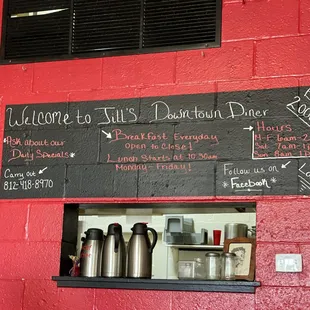 Welcome to Jill's Downtown Diner
*Ask about our
Daily Specials*
Carry out
812-418-8970
Breakfast Everyday
open to Close!
Lunch Starts at 10:30am
Monday - Friday!
Hours
M-F 6am-2
Sat 7am-1
Sun 8am-1
Follow us on
*Facebook*